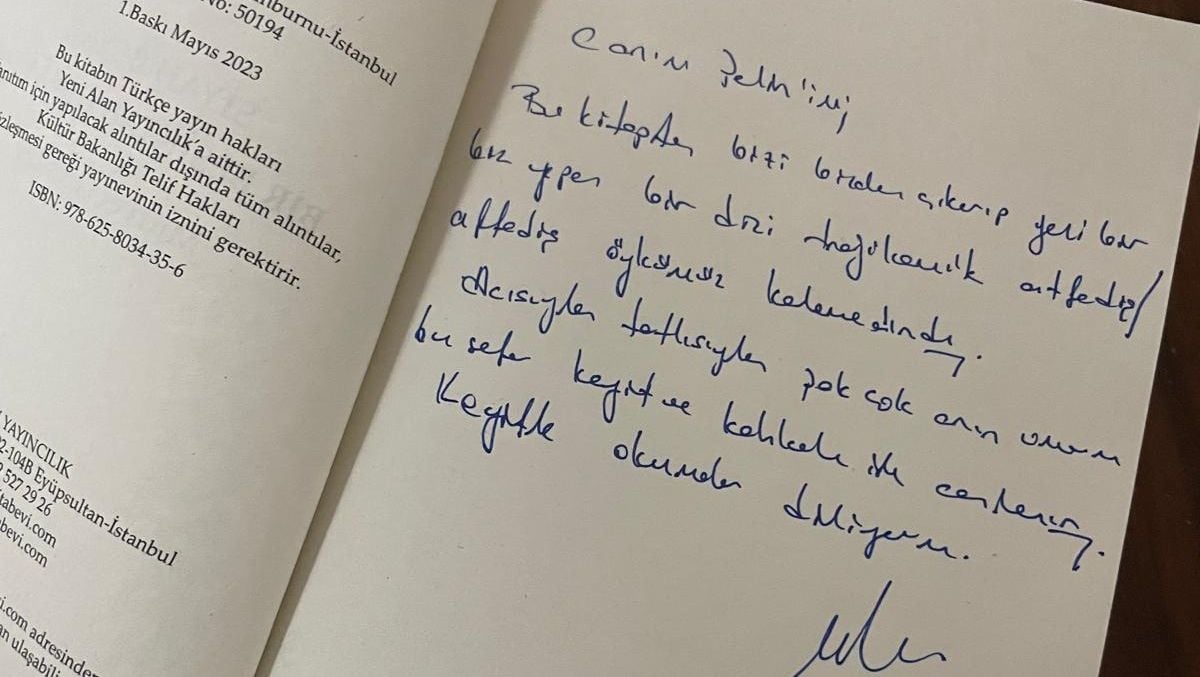 nburnu-İstanbul
No: 50194
1.Baskı Mayıs 2023
Bu kitabın Türkçe yayın hakları
Yeni Alan Yayıncılık'a aittir.
anıtım için yapılacak alıntılar dışında tüm alıntılar,
Kültür Bakanlığı Telif Hakları
özleşmesi gereği yayınevinin iznini gerektirir.
ISBN: 978-625-8034-35-6
YAYINCILIK
02-104B Eyüpsultan-İstanbul
2 527 29 26
tabevi.com
bevi.com
i.com adresinden
an ulaşabili
Canım
Bu kitapta bizi bizden çıkarıp yeni bir
biz yapan bir dizi trajikomik affediş/
affediş öykümüz kaleme alındı.
Acısıyla tatlısıyla pok çok anın umarım
bu sefer keyif ve kahkaha ile canlanır.
Keyifle okuman diliyorum.